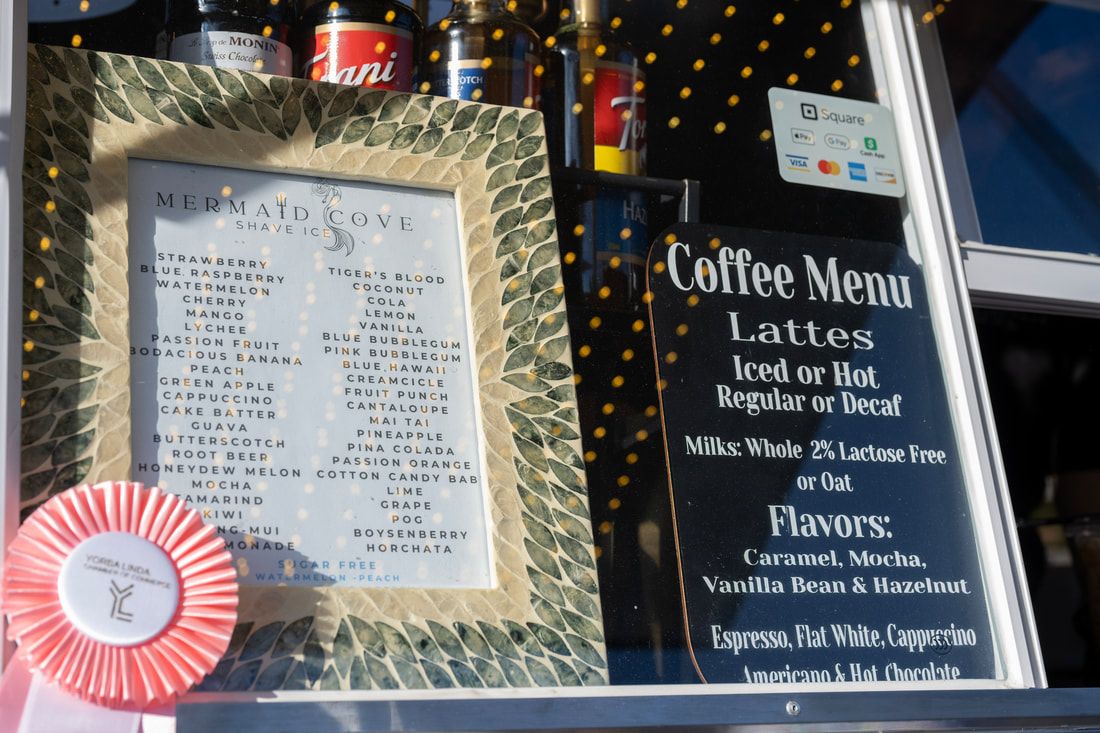 MONIN
Swiss Chocolate
Torani
Square
Pay
G Pay
Cash App
VISA
MERMAID COVE
SHAVE ICE
STRAWBERRY
BLUE RASPBERRY
WATERMELON
CHERRY
MANGO
LYCHEE
PASSION FRUIT
BODACIOUS BANANA
PEACH
GREEN APPLE
CAPPUCCINO
CAKE BATTER
GUAVA
BUTTERSCOTCH
ROOT BEER
HONEYDEW MELON
MOCHA
AMARIND
KIWI
NG-MUI
MONADE
TIGER'S BLOOD
COCONUT
COLA
LEMON
VANILLA
BLUE BUBBLEGUM
PINK BUBBLEGUM
BLUE HAWAII
CREAMCICLE
FRUIT PUNCH
CANTALOUPE
MAI TAI
PINEAPPLE
PINA COLADA
PASSION ORANGE
COTTON CANDY BAB
LIME
GRAPE
POG
BOYSENBERRY
HORCHATA
SUGAR FREE
WATERMELON -PEACH
YORBA LINDA
CHAMBER OF COMMERCE
YL
HAZ
Coffee Menu
Lattes
Iced or Hot
Regular or Decaf
Milks: Whole 2% Lactose Free
or Oat
Flavors:
Caramel, Mocha,
Vanilla Bean & Hazelnut
Espresso, Flat White, Cappuccino
Americano & Hot Chocolate